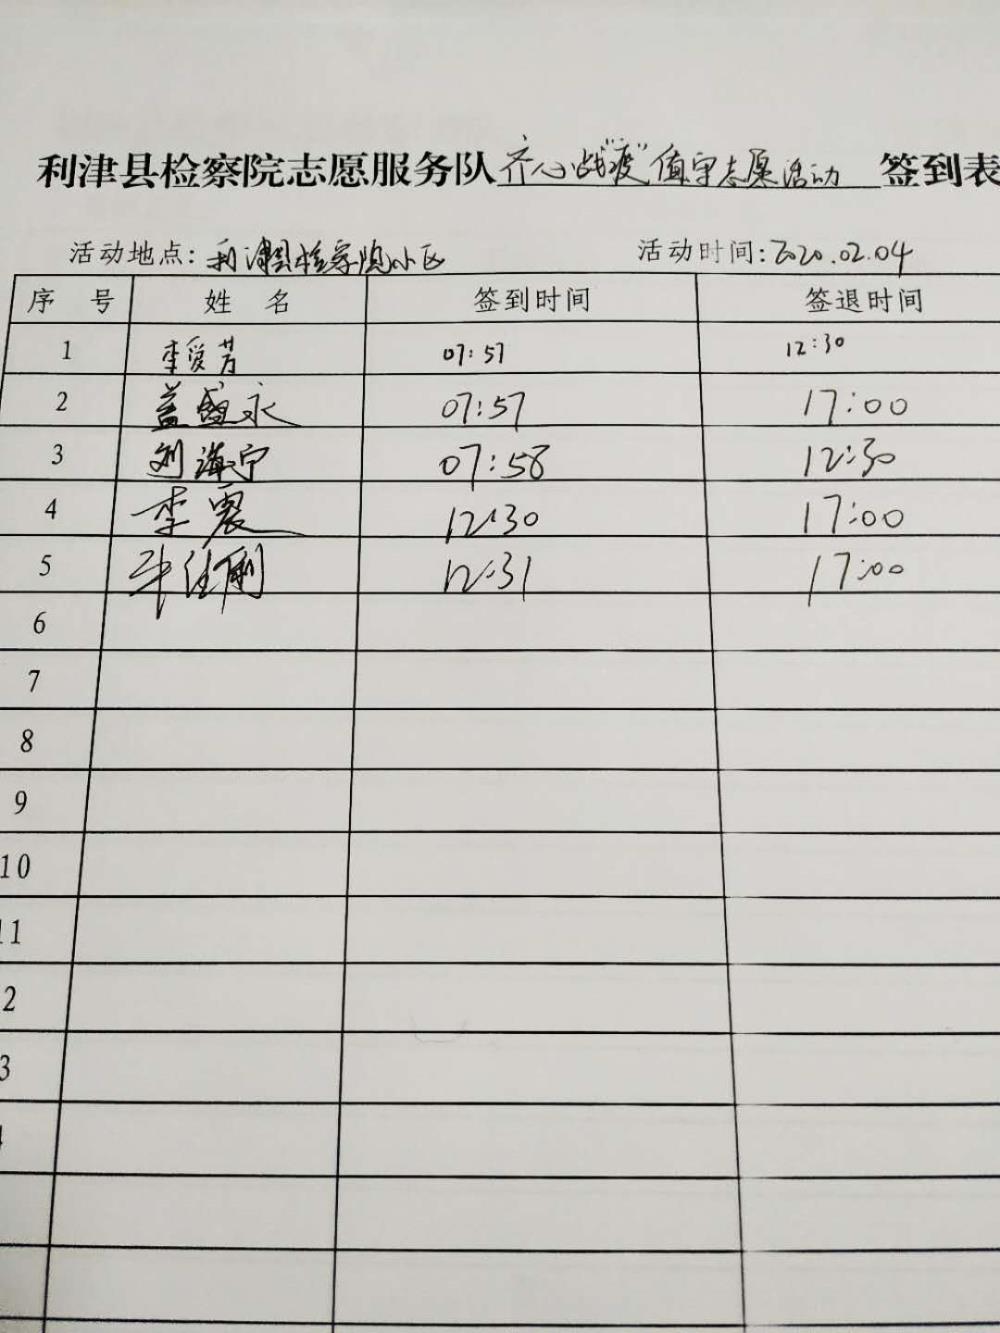 利津县检察院志愿服务队齐心战"疫"值守志愿活动 签到表
活动地点:利津县检察院小区 活动时间:2020.02.04
序 号 姓 名 签到时间 签退时间
1 李爱芳 07:57 12:30
2 盖盛永 07:57 17:00
3 刘海宁 07:58 12:30
4 李震 12:30 17:00
5 12:31 17:00
6
7
8
9
10
11
2
3